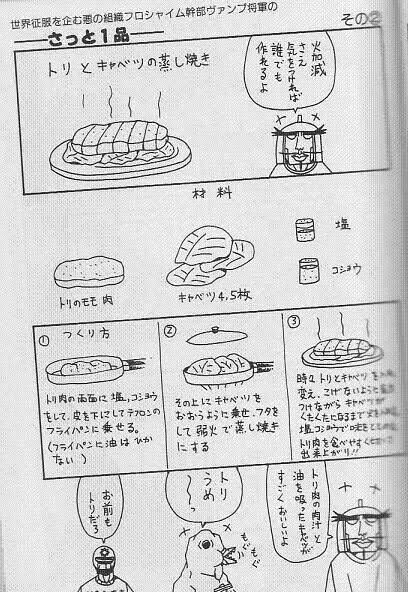 世界征服を企む悪の組織フロシャイム幹部ヴァンプ将軍の
さっと1品
その②
トリとキャベツの蒸し焼き
火加減
さえ
気をつければ
誰でも
作れるよ
材料
トリのモモ肉
キャベツ4,5枚
塩
コショウ
① つくり方
トリ肉の両面に塩,コショウ
をして、皮を下にしてテフロンの
フライパンに乗せる。
(フライパンに油はひか
ない)
②
その上にキャベツを
おおうように乗せ、フタを
して弱火で蒸し焼き
にする
③
時々トリとキャベツを
変え、こげないように
つけながらキャベツが
くたくたになるまで
塩,コショウで味を
トリ肉を食べやすく
出来上がり!!
トリ肉の肉汁と
油を吸ったキャベツが
すごくおいしいよ
トリ
うめ〜〜っ
もぐ
もぐ
お前も
トリだろ